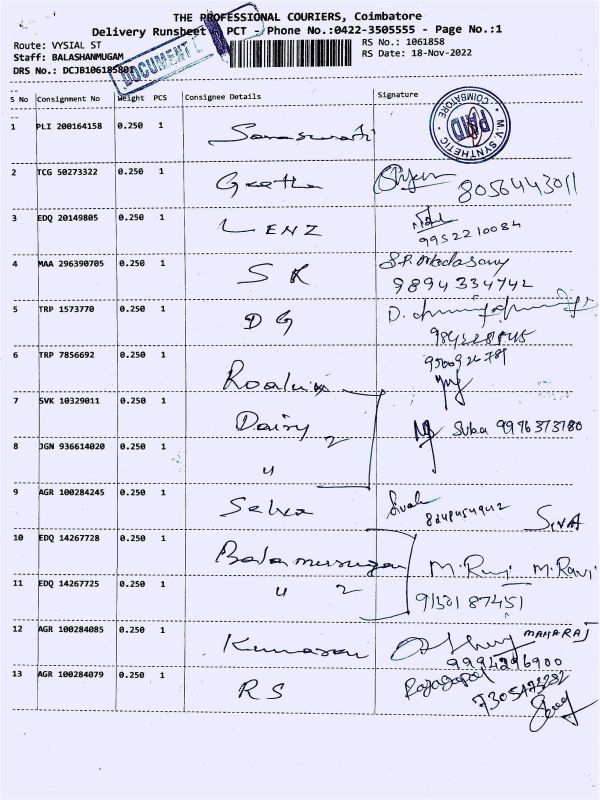 THE PROFESSIONAL COURIERS, Coimbatore
Delivery Runsheet PCT - Phone No.:0422-3505555 - Page No.:1
Route: VYSIAL ST
RS No.: 1061858
Staff: BALASHANMUGAM
RS Date: 18-Nov-2022
DRS No.: DCJB106185801
DOCUMENT
S No Consignment No Weight PCS Consignee Details Signature
M.V. SYNTHETIC COIMBATORE PAID
1 PLI 200164158 0.250 1 Saraswathi
2 TCG 50273322 0.250 1 Geetha 8056443011
3 EDQ 20149805 0.250 1 LENZ
9952210084
4 MAA 296390705 0.250 1 SK S.P. Madasamy
9894334742
5 TRP 1573770 0.250 1 DG D.
6 TRP 7856692 0.250 1
7 SVK 10329011 0.250 1 Dairy 2 Suba 9976373780
8 JGN 936614020 0.250 1 "
9 AGR 100284245 0.250 1 Selva SIVA
10 EDQ 14267728 0.250 1 Balamurugan M. Ravi M. Ravi
11 EDQ 14267725 0.250 1 " 2 9150187451
12 AGR 100284085 0.250 1 Kumaran MAHARAJ
9994296900
13 AGR 100284079 0.250 1 RS Rajagopal
7305473292